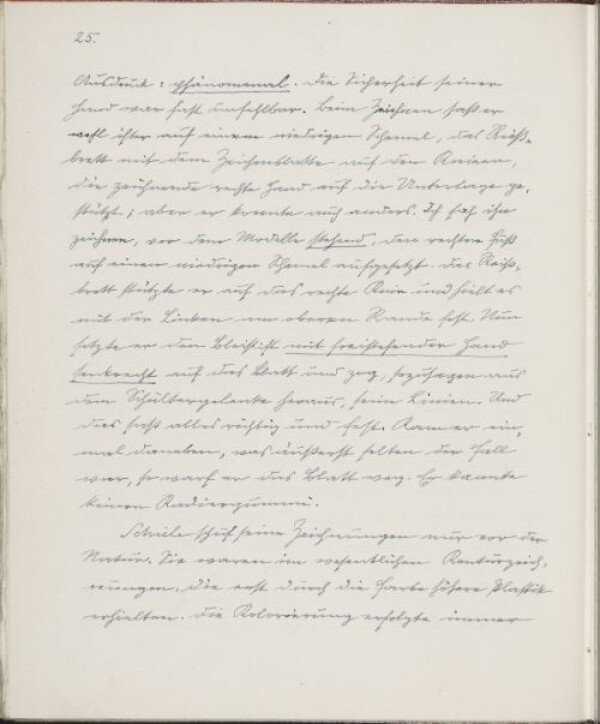 25.
Ausdruck: phänomenal. Die Sicherheit seiner
Hand war fast unfehlbar. Beim Zeichnen saß er
wohl öfter auf einem niedrigen Schemel, das Reiß-
brett mit dem Zeichenblatte auf den Knieen,
die zeichnende rechte Hand auf die Unterlage ge-
stützt; aber er konnte auch anders. Ich sah ihn
zeichnen, vor dem Modelle stehend, den rechten Fuß
auf einem niedrigen Schemel aufgesetzt. Das Reiß-
brett stützte er auf das rechte Knie und hielt es
mit der Linken am oberen Rande fest. Nun
setzte er den Bleistift mit freistehender Hand
senkrecht auf das Blatt und zog, sozusagen aus
dem Schultergelenke heraus, seine Linien. Und
das saß alles richtig und fest. Kam er ein-
mal daneben, was äußerst selten der Fall
war, so warf er das Blatt weg. Er kannte
keinen Radiergummi.
Schiele schuf seine Zeichnungen nur vor der
Natur. Sie waren im wesentlichen Konturzeich-
nungen, die erst durch die Farbe höhere Plastik
erhielten. Die Kolorierung erfolgte immer